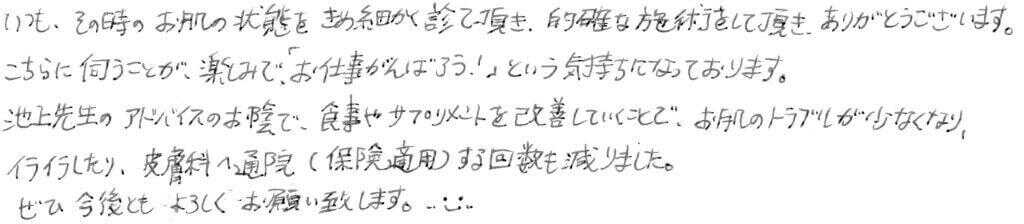 いつも、その時のお肌の状態をきめ細かく診て頂き、的確な施術をして頂き、ありがとうございます。
こちらに伺うことが、楽しみで、「お仕事がんばろう!」という気持ちになっております。
池上先生のアドバイスのお陰で、食事やサプリメントを改善していくことで、お肌のトラブルが少なくなり、
イライラしたり、皮膚科へ通院(保険適用)する回数も減りました。
ぜひ今後ともよろしくお願い致します。